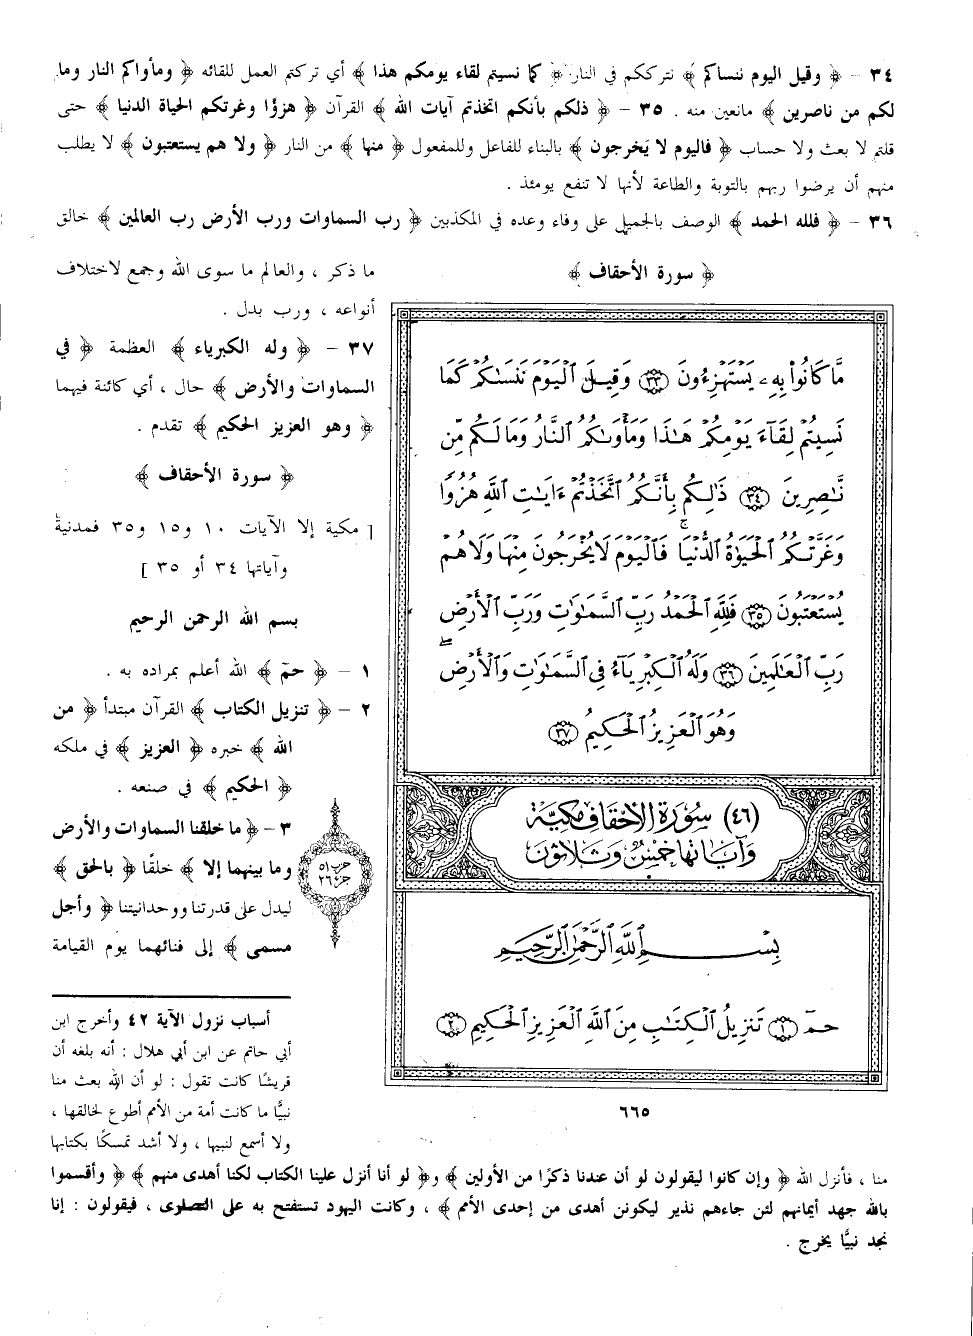 ٣٤ - ﴿ وقيل اليوم ننساكم ﴾ نترككم في النار ﴿ كما نسيتم لقاء يومكم هذا ﴾ أي تركتم العمل للقائه ﴿ ومأواكم النار وما
لكم من ناصرين ﴾ مانعين منه . ٣٥ - ﴿ ذلكم بأنكم اتخذتم آيات الله ﴾ القرآن ﴿ هزؤا وغرتكم الحياة الدنيا ﴾ حتى
قلتم لا بعث ولا حساب ﴿ فاليوم لا يَخرجون ﴾ بالبناء للفاعل وللمفعول ﴿ منها ﴾ من النار ﴿ ولا هم يستعتبون ﴾ لا يطلب
منهم أن يرضوا ربهم بالتوبة والطاعة لأنها لا تنفع يومئذ .
٣٦ - ﴿ فلله الحمد ﴾ الوصف بالجميل على وفاء وعده في المكذبين ﴿ رب السماوات ورب الأرض رب العالمين ﴾ خالق
ما ذكر ، والعالم ما سوى الله وجمع لاختلاف
أنواعه ، ورب بدل .
٣٧ - ﴿ وله الكبرياء ﴾ العظمة ﴿ في
السماوات والأرض ﴾ حال ، أي كائنة فيهما
﴿ وهو العزيز الحكيم ﴾ تقدم .
﴿ سورة الأحقاف ﴾
[ مكية إلا الآيات ١٠ و١٥ و٣٥ فمدنية
وآياتها ٣٤ أو ٣٥ ]
بسم الله الرحمن الرحيم
١ - ﴿ حمٓ ﴾ الله أعلم بمراده به .
٢ - ﴿ تنزيل الكتاب ﴾ القرآن مبتدأ ﴿ من
الله ﴾ خبره ﴿ العزيز ﴾ في ملكه
﴿ الحكيم ﴾ في صنعه .
٣ - ﴿ ما خلقنا السماوات والأرض
وما بينهما إلا ﴾ خلقًا ﴿ بالحق ﴾
ليدل على قدرتنا ووحدانيتنا ﴿ وأجل
مسمى ﴾ إلى فنائهما يوم القيامة
حزب ٥١
جزء ٢٦
﴿ سورة الأحقاف ﴾
مَّا كَانُوا۟ بِهِۦ يَسْتَهْزِءُونَ ٣٣ وَقِيلَ ٱلْيَوْمَ نَنسَىٰكُمْ كَمَا
نَسِيتُمْ لِقَآءَ يَوْمِكُمْ هَـٰذَا وَمَأْوَىٰكُمُ ٱلنَّارُ وَمَا لَكُم مِّن
نَّـٰصِرِينَ ٣٤ ذَٰلِكُم بِأَنَّكُمُ ٱتَّخَذْتُمْ ءَايَـٰتِ ٱللَّهِ هُزُوًا
وَغَرَّتْكُمُ ٱلْحَيَوٰةُ ٱلدُّنْيَا ۚ فَٱلْيَوْمَ لَا يُخْرَجُونَ مِنْهَا وَلَا هُمْ
يُسْتَعْتَبُونَ ٣٥ فَلِلَّهِ ٱلْحَمْدُ رَبِّ ٱلسَّمَـٰوَٰتِ وَرَبِّ ٱلْأَرْضِ
رَبِّ ٱلْعَـٰلَمِينَ ٣٦ وَلَهُ ٱلْكِبْرِيَآءُ فِى ٱلسَّمَـٰوَٰتِ وَٱلْأَرْضِ ۖ
وَهُوَ ٱلْعَزِيزُ ٱلْحَكِيمُ ٣٧
(٤٦) سُورَةُ الأَحْقَافِ مَكِّيَّة
وَآيَاتُهَا خَمْسٌ وَثَلَاثُونَ
بِسْمِ ٱللَّهِ ٱلرَّحْمَـٰنِ ٱلرَّحِيمِ
حمٓ ١ تَنزِيلُ ٱلْكِتَـٰبِ مِنَ ٱللَّهِ ٱلْعَزِيزِ ٱلْحَكِيمِ ٢
٦٦٥
أسباب نزول الآية ٤٢ وأخرج ابن
أبي حاتم عن ابن أبي هلال : أنه بلغه أن
قريشًا كانت تقول : لو أن الله بعث منا
نبيًّا ما كانت أمة من الأمم أطوع لخالقها ،
ولا أسمع لنبيها ، ولا أشد تمسكًا بكتابها
منا ، فأنزل الله ﴿ وإن كانوا ليقولون لو أن عندنا ذكرًا من الأولين ﴾ و﴿ لو أنا أنزل علينا الكتاب لكنا أهدى منهم ﴾ ﴿ وأقسموا
بالله جهد أيمانهم لئن جاءهم نذير ليكونن أهدى من إحدى الأمم ﴾ ، وكانت اليهود تستفتح به على النصارى ، فيقولون : إنا
نجد نبيًّا يخرج .